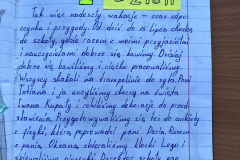 Tak więc nadeszły wakacje - czas odpo-
czynku i przygody. Od dziś do 15 lipca chodzę
do szkoły, gdzie razem z moimi przyjaciółmi
i nauczycielami dobrze się bawimy. Dzisiaj
dobrze się bawiliśmy i ciężko pracowaliśmy.
Wszyscy skakali na trampolinie do syta. Pani
Tatiana i ja uczyliśmy skeczy na święto
Iwana Kupały i robiliśmy dekoracje do przed-
stawienia. Przygotowywaliśmy się też do ankiety
z fizyki, którą poprowadzi pani Daria. Razem
z panią Oksaną zbieraliśmy klocki Lego i
śpiewaliśmy piosenki. Dyrektor szkoły